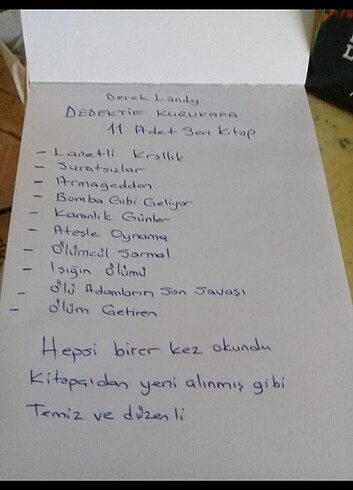 Derek Landy
DEDEKTİF KURUKAFA
11 Adet Seri Kitap
- Lanetli Krallık
- Suratsızlar
- Armageddon
- Bomba Gibi Geliyor
- Karanlık Günler
- Ateşle Oynama
- Ölümcül Sarmal
- Işığın Ölümü
- Ölü Adamların Son Savaşı
- Ölüm Getiren
Hepsi birer kez okundu
Kitapçıdan yeni alınmış gibi
Temiz ve düzenli